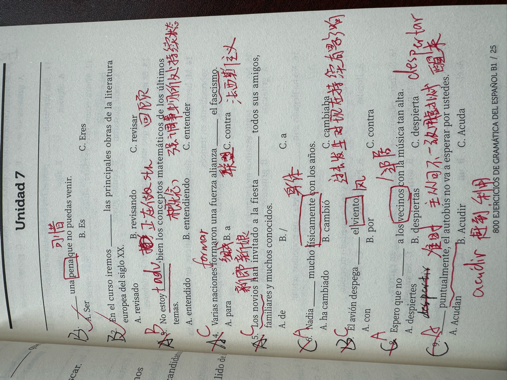 Unidad 7
可惜
B
1. una pena que no puedas venir.
A. Ser B. Es C. Eres
B
En el curso iremos ______ las principales obras de la literatura
europea del siglo XX.
A. revisado B. revisando C. revisar 回顾
B
No estoy ______ bien los conceptos matemáticos de los últimos
temas.
A. entendido B. entendiendo C. entender
C formar
Varias naciones formaron una fuerza alianza ______ el fascismo.
A. para B. a C. contra 法西斯主义
C
5. Los novios han invitado a la fiesta ______ todos sus amigos,
familiares y muchos conocidos.
A. de B. / C. a
A
Nadia ______ mucho físicamente con los años.
A. ha cambiado B. cambió C. cambiaba
C
El avión despega ______ el viento. 风
A. con B. por C. contra
A
Espero que no ______ a los vecinos con la música tan alta. despertar
A. despiertes B. despiertas C. despierta 醒来
A
______ puntualmente, el autobús no va a esperar por ustedes.
A. Acudan B. Acudir C. Acuda
acudir
800 EJERCICIOS DE GRAMÁTICA DEL ESPAÑOL B1 / 25